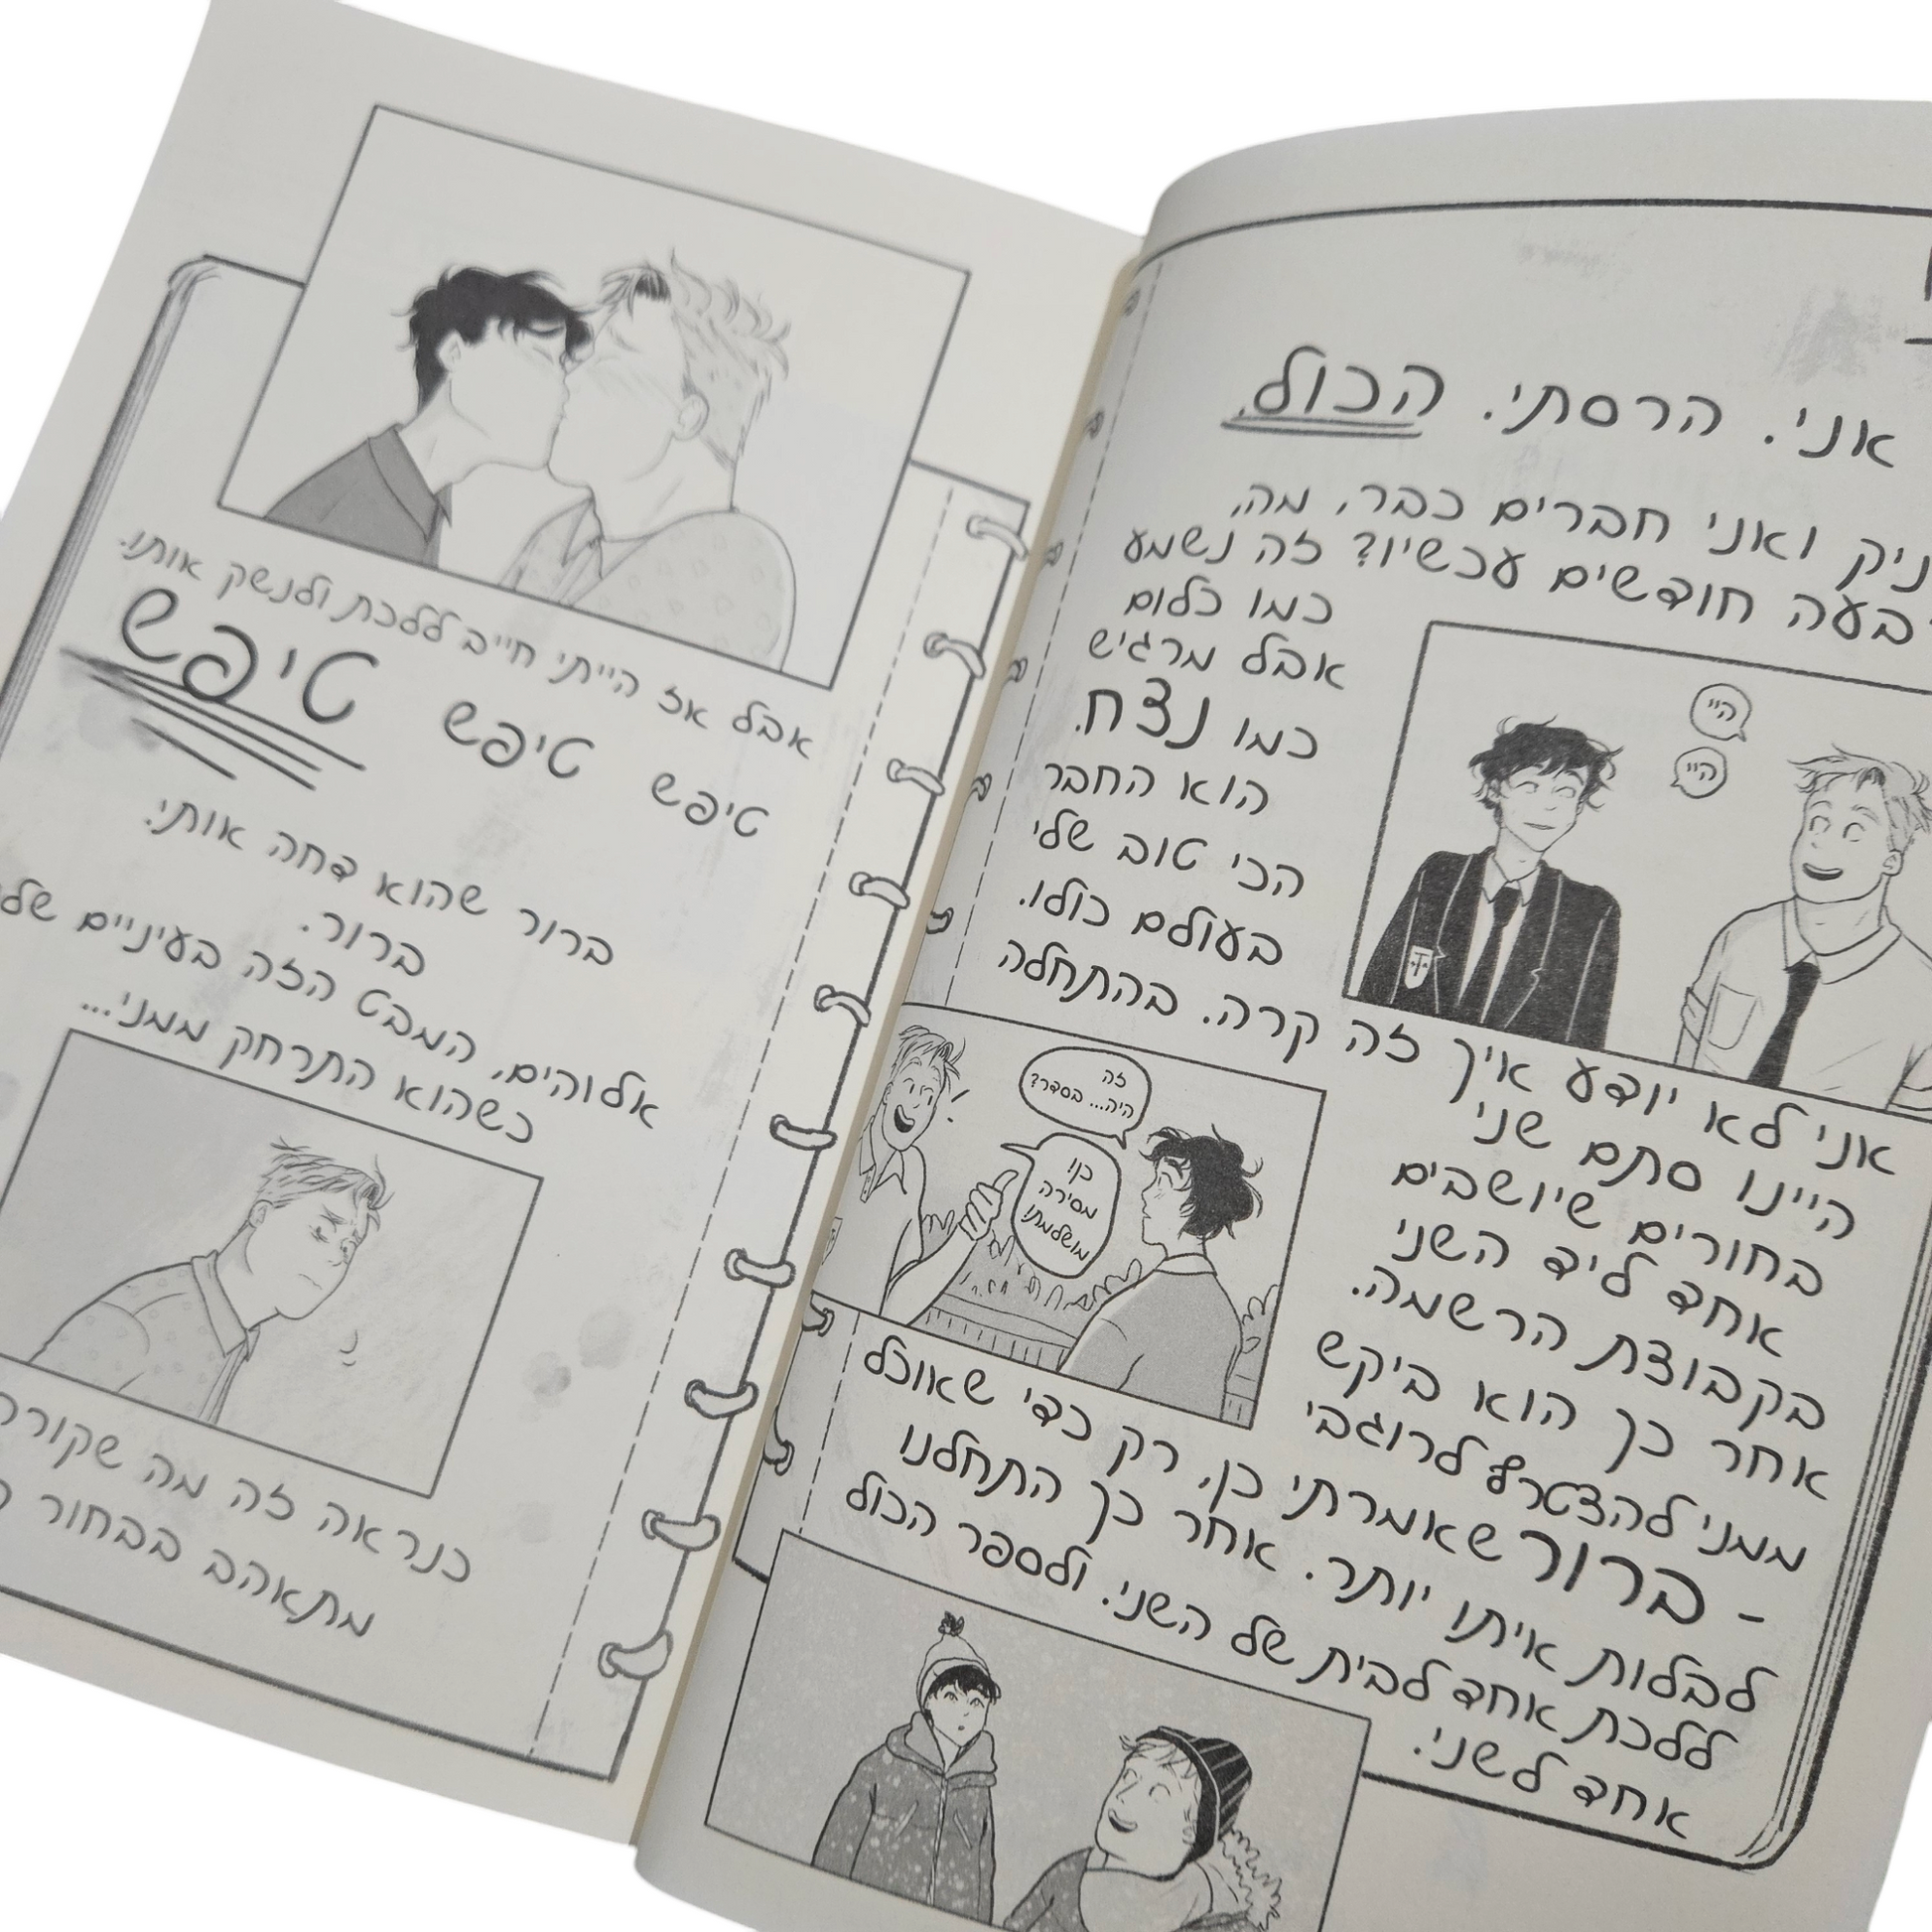 אני. הרסתי. הכול.
ניק ואני חברים כבר, מה,
חודשים עכשיו? זה נשמע
כמו כלום
אבל מרגיש
כמו נצח.
הוא החבר
הכי טוב שלי
בעולם כולו.
היי
היי
אני לא יודע איך זה קרה. בהתחלה
היינו סתם שני
בחורים שיושבים
אחד ליד השני
בקבוצת הרשמה.
אחר כך הוא ביקש
ממני להצטרף לרוגבי
- ברור שאמרתי כן, רק כדי שאוכל
לבלות איתו יותר. אחר כך התחלנו
ללכת אחד לבית של השני. ולספר הכול
אחד לשני.
זה
היה... בסדר?
כן!
מסירה
מושלמת!
אבל אז הייתי חייב ללכת ולנשק אותו.
טיפש טיפש טיפש
ברור שהוא דחה אותי.
ברור.
אלוהים, המבט הזה בעיניים שלו
כשהוא התרחק ממני...
כנראה זה מה שקורה
מתאהב בבחור